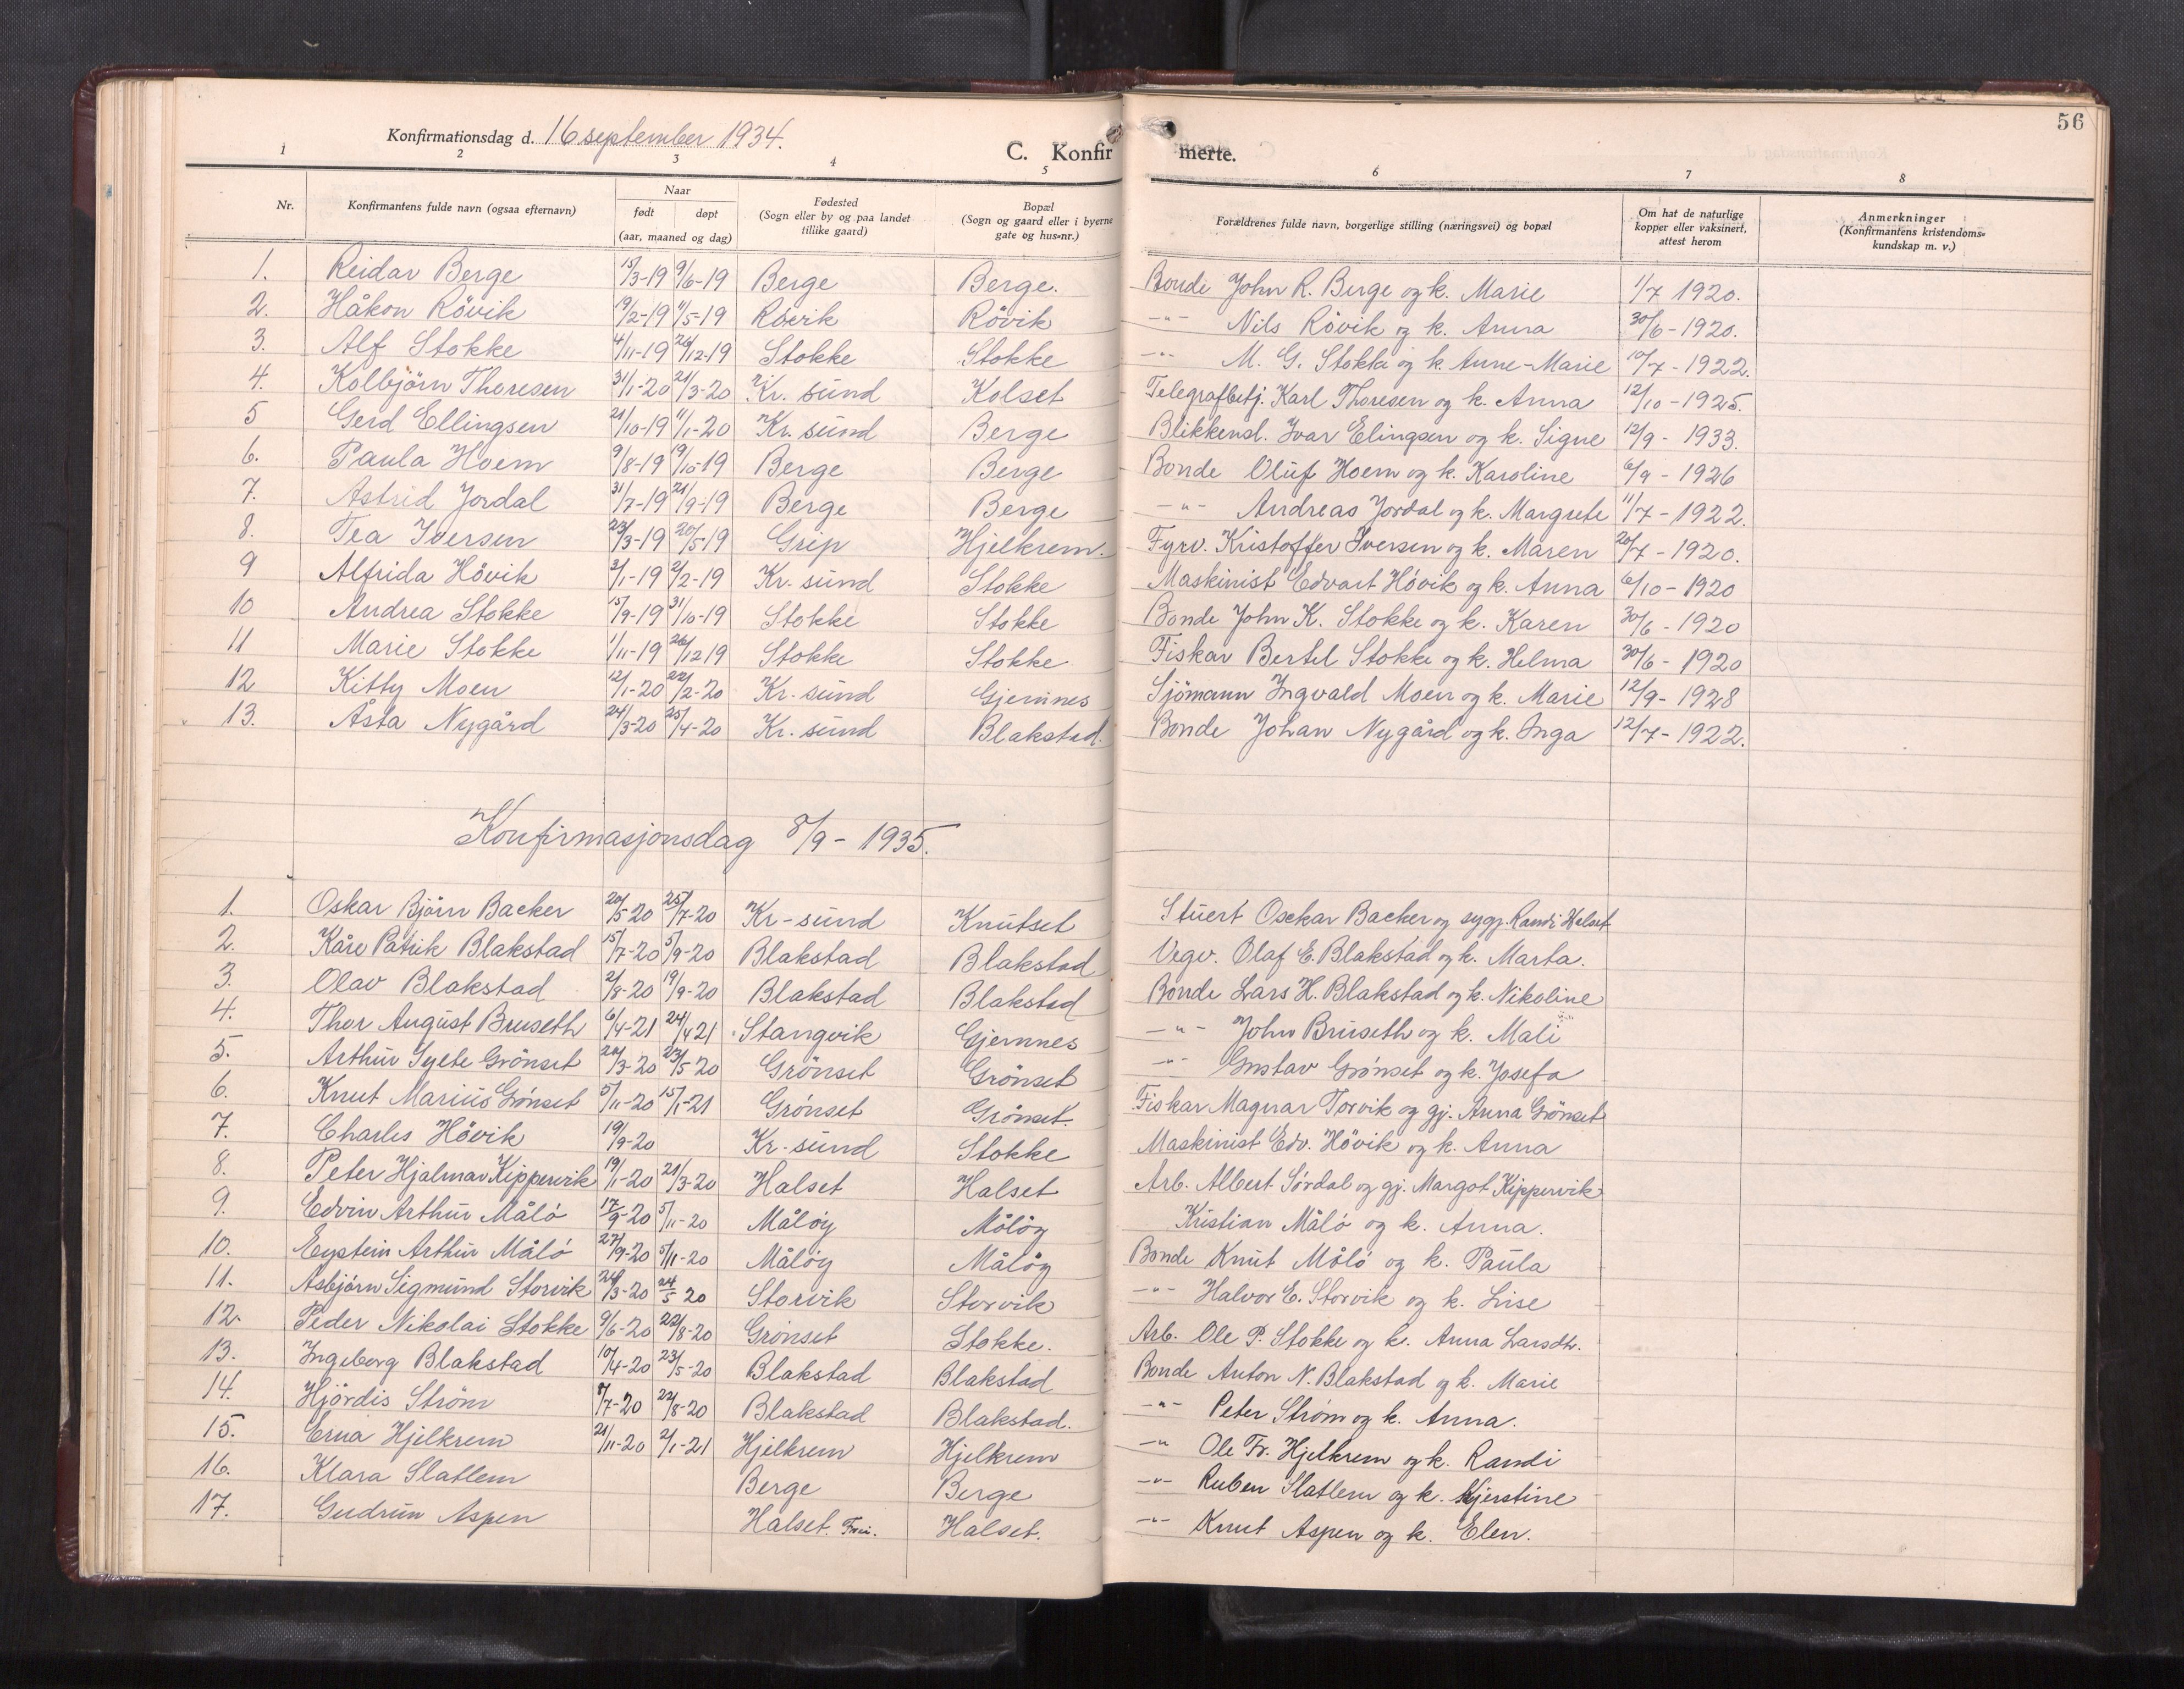 56
Konfirmationsdag d. 16 september 1934.
C. Konfirmerte.
1 2 3 4 5 6 7 8
Nr. Konfirmantens fulde navn (ogsaa efternavn) Naar født døpt (aar, maaned og dag) Fødested (Sogn eller by og paa landet tillike gaard) Bopæl (Sogn og gaard eller i byerne gate og hus=nr.) Forældrenes fulde navn, borgerlige stilling (næringsvei) og bopæl Om hat de naturlige kopper eller vaksinert, attest herom Anmerkninger (Konfirmantens kristendoms= kundskap m. v.)
1. Reidar Berge 15/3-19 9/6-19 Berge Berge. Bonde John R. Berge og k. Marie 1/7 1920.
2. Håkon Rövik 19/2-19 11/5-19 Rövik Rövik -"- Nils Rövik og k. Anna 30/6-1920.
3. Alf Stokke 4/11-19 26/12-19 Stokke Stokke -"- M. G. Stokke og k. Anne-Marie 10/7-1922.
4. Kolbjörn Thoresen 31/1-20 21/3-20 Kr. sund Kolset Telegrafbetj. Karl Thoresen og k. Anna 12/10-1925.
5 Gerd Ellingsen 21/10-19 11/1-20 Kr. sund Berge Blikkensl. Ivar Elingsen og k. Signe 12/9-1933.
6. Paula Hoem 9/8-19 19/10-19 Berge Berge Bonde Oluf Hoem og k. Karoline 6/9-1926
7. Astrid Jordal 31/7-19 21/9-19 Berge Berge -"- Andreas Jordal og k. Margrete 11/7-1922.
8. Tea Iversen 23/3-19 20/5-19 Grip Hjelkrem. Fyrv. Kristoffer Iversen og k. Maren 20/7-1920.
9 Alfrida Hövik 2/1-19 2/2-19 Kr. sund Stokke Maskinist Edvart Hövik og k. Anna 6/10-1920
10 Andrea Stokke 15/9-19 31/10-19 Stokke Stokke Bonde John K. Stokke og k. Karen 30/6-1920
11 Marie Stokke 1/11-19 26/12 19 Stokke Stokke Fiskar Bertel Stokke og k. Helma 30/6-1920
12 Kitty Moen 12/1-20 22/2-20 Kr. sund Gjemnes Sjömann Ingvald Moen og k. Marie 12/9-1928
13. Åsta Nygård 24/3-20 25/4-20 Kr. sund Blakstad. Bonde Johan Nygård og k. Inga 12/7-1922.
Konfirmasjonsdag 8/9-1935.
1. Oskar Björn Backer 20/5-20 25/7-20 Kr-sund Knutset Stuert Osckar Backer og sygj. Randi Halset
2. Kåre Patrik Blakstad 15/7-20 5/9-20 Blakstad Blakstad Vegv. Olaf E. Blakstad og k. Marta.
3. Olav Blakstad 2/8-20 19/9-20 Blakstad Blakstad Bonde Lars H. Blakstad og k. Nikoline
4. Thor August Bruseth 6/4-21 24/4 21 Stangvik Gjemnes -"- John Bruseth og k. Mali
5. Arthur Grönset 20/3-20 23/5-20 Grönset Grönset -"- Gustav Grönset og k. Josefa
6. Knut Marius Grönset 5/11-20 15/1-21 Grönset Grönset. Fiskar Magnar Torvik og gj. Anna Grönset
7. Charles Hövik 19/9-20 Kr-sund Stokke Maskinist Edv. Hövik og k. Anna
8. Peter Hjalmar Kippervik 19/1-20 21/3-20 Halset Halset Arb. Albert Sördal og gj. Margot Kippervik
9. Edvin Arthur Målö 17/9-20 5/11-20 Målöy Målöy Kristian Målö og k. Anna.
10. Eystein Arthur Målö 27/9-20 5/11-20 Målöy Målöy Bonde Knut Målö og k. Paula
11. Asbjörn Sigmund Storvik 24/3-20 24/5 20 Storvik Storvik -"- Halvor E. Storvik og k. Lise
12. Peder Nikolai Stokke 9/6-20 22/8-20 Grönset Stokke. Arb. Ole P. Stokke og k. Anna Larsdtr.
13. Ingeborg Blakstad 10/4-20 23/5-20 Blakstad Blakstad Bonde Anton N. Blakstad og k. Marie
14. Hjördis Ström 8/7-20 22/8-20 Blakstad Blakstad. -"- Peter Ström og k. Anna.
15. Erna Hjelkrem 21/11-20 2/1-21 Hjelkrem Hjelkrem -"- Ole Fr. Hjelkrem og k. Randi
16. Klara Slatlem Berge Berge -"- Ruben Slatlem og k. Kjerstine
17. Gudrun Aspen Halset. Frei. Halset. -"- Knut Aspen og k. Elen.